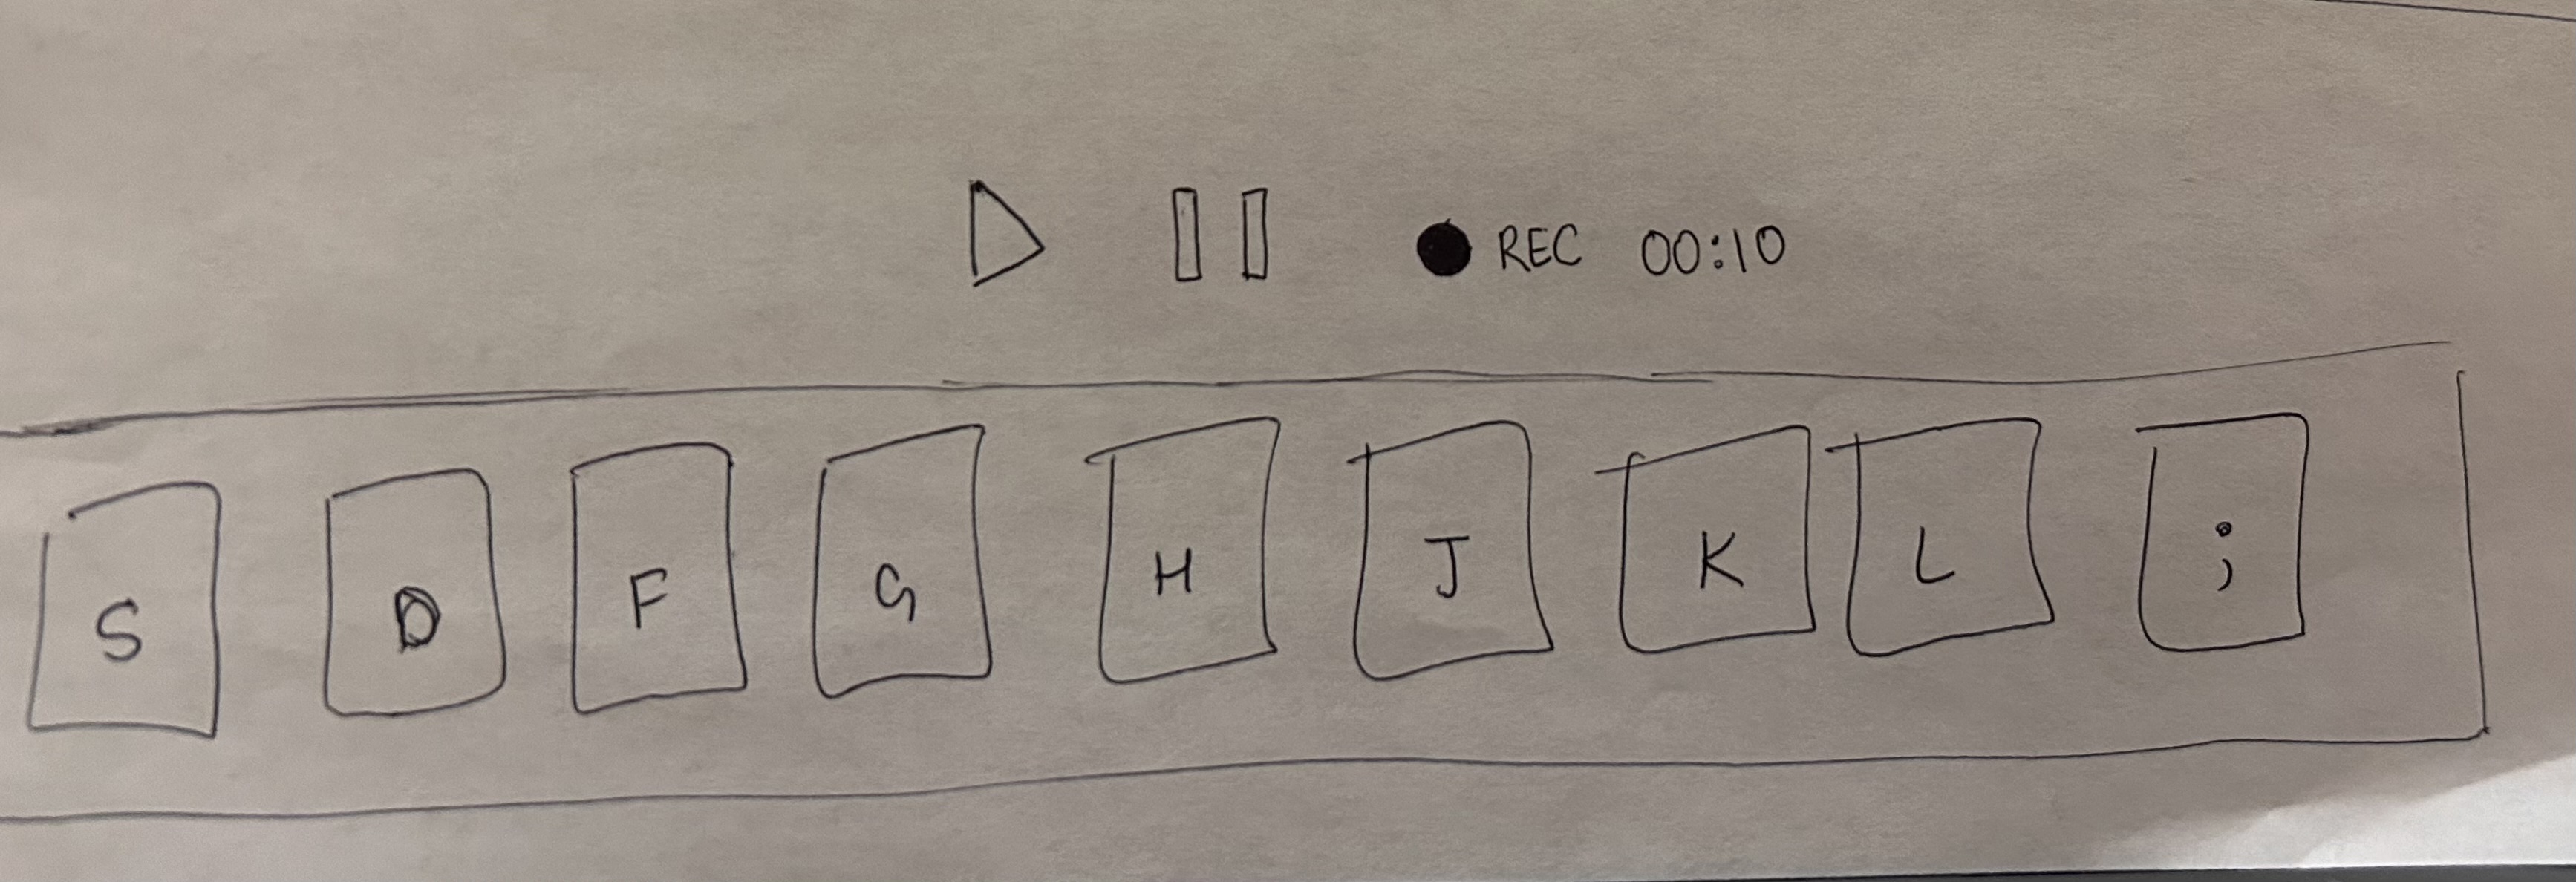 REC 00:10
S D F G H J K L ;